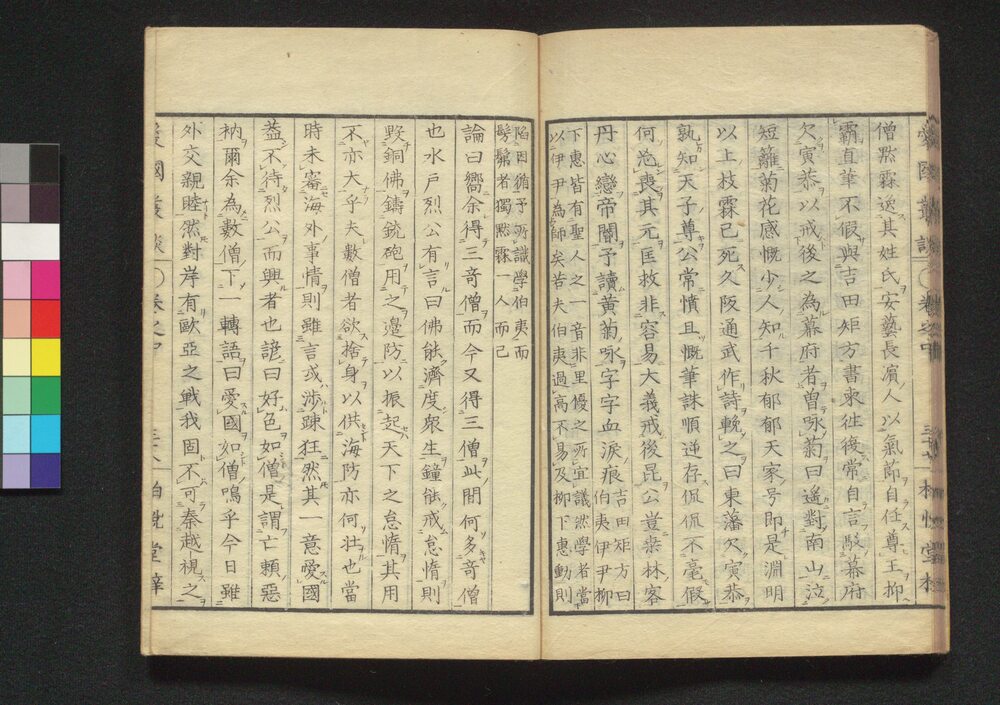 僧黙霖逸其姓氏安藝長濱人以氣節自任尊王抑
霸直筆不假與吉田矩方書來徃復常自言駁幕府
欠寅恭以戒後之為幕府者曽咏菊曰遙對南山泣
短籬菊花感慨少人知千秋郁郁天家号即是淵明
以上枝霖已死久阪通武作詩輓之曰東藩欠寅恭
孰知天子尊公常憤且慨筆誅順逆存侃侃不毫假
何怱喪其元匡救非容易大義戒後昆公豈桒林客
丹心戀帝閽予讀黄菊咏字字血涙痕
吉田矩方曰
伯夷伊尹柳
下惠皆有聖人之一
音非里優之所宜議然學者當
以伊尹為師矣苦夫伯夷過高不易及柳下惠動則
陷因循予所識學伯夷而
髣髴者獨黙霖一人而已
論曰嚮余得三竒僧而今又得三僧此間何多竒僧
也水戸烈公有言曰佛能濟度衆生鐘能戒怠惰則
毀銅佛鑄銃砲用之邊防以振起天下之怠惰其用
不亦大乎夫數僧者欲捨身以供海防亦何壮也當
時未審海外事情則雖言或渉踈狂然其一意愛國
葢不待烈公而興者也諺曰好色如僧是謂亡頼惡
衲爾余為數僧下一轉語曰愛國如僧嗚乎今日雖
外交親睦然對岸有歐亞之戰我固不可秦越視之
愛國叢談
卷之中